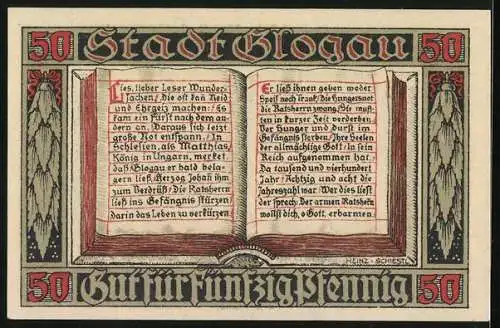 50 Stadt Glogau 50
Lies, lieber Leser Wunder-
sachen, Die oft das Neid
und Ehrgeiz machen: Es
kam ein Fürst nach dem an-
dern an. Daraus sich letzt
große Not entspann. In
Schlesien, als Matthias,
König in Ungarn, merket
daß Glogau er bald bela-
gern ließ, Herzog Johañ ihm
zum Verdrüß: Die Ratsherrn
ließ ins Gefängnis stürzen,
darin das Leben zu verkürzen
Er ließ ihnen geben weder
Speis noch Trank: Die Hungersnot
die Ratsherrn zwang, Sie muß-
ten in kurzer Zeit verderben,
Vor Hunger und durst im
Gefängnis sterben, Ihre Seelen
der allmächtige Gott: In sein
Reich aufgenommen hat.
Da tausend und vierhundert
Jahr: Achtzig und acht die
Jahreszahl war. Wer dies liest
der sprech: Der armen Ratsherrn
wollst dich, o Gott, erbarmen.
HEINZ SCHIESTL
50 Gut für Fünfzig Pfennig 50